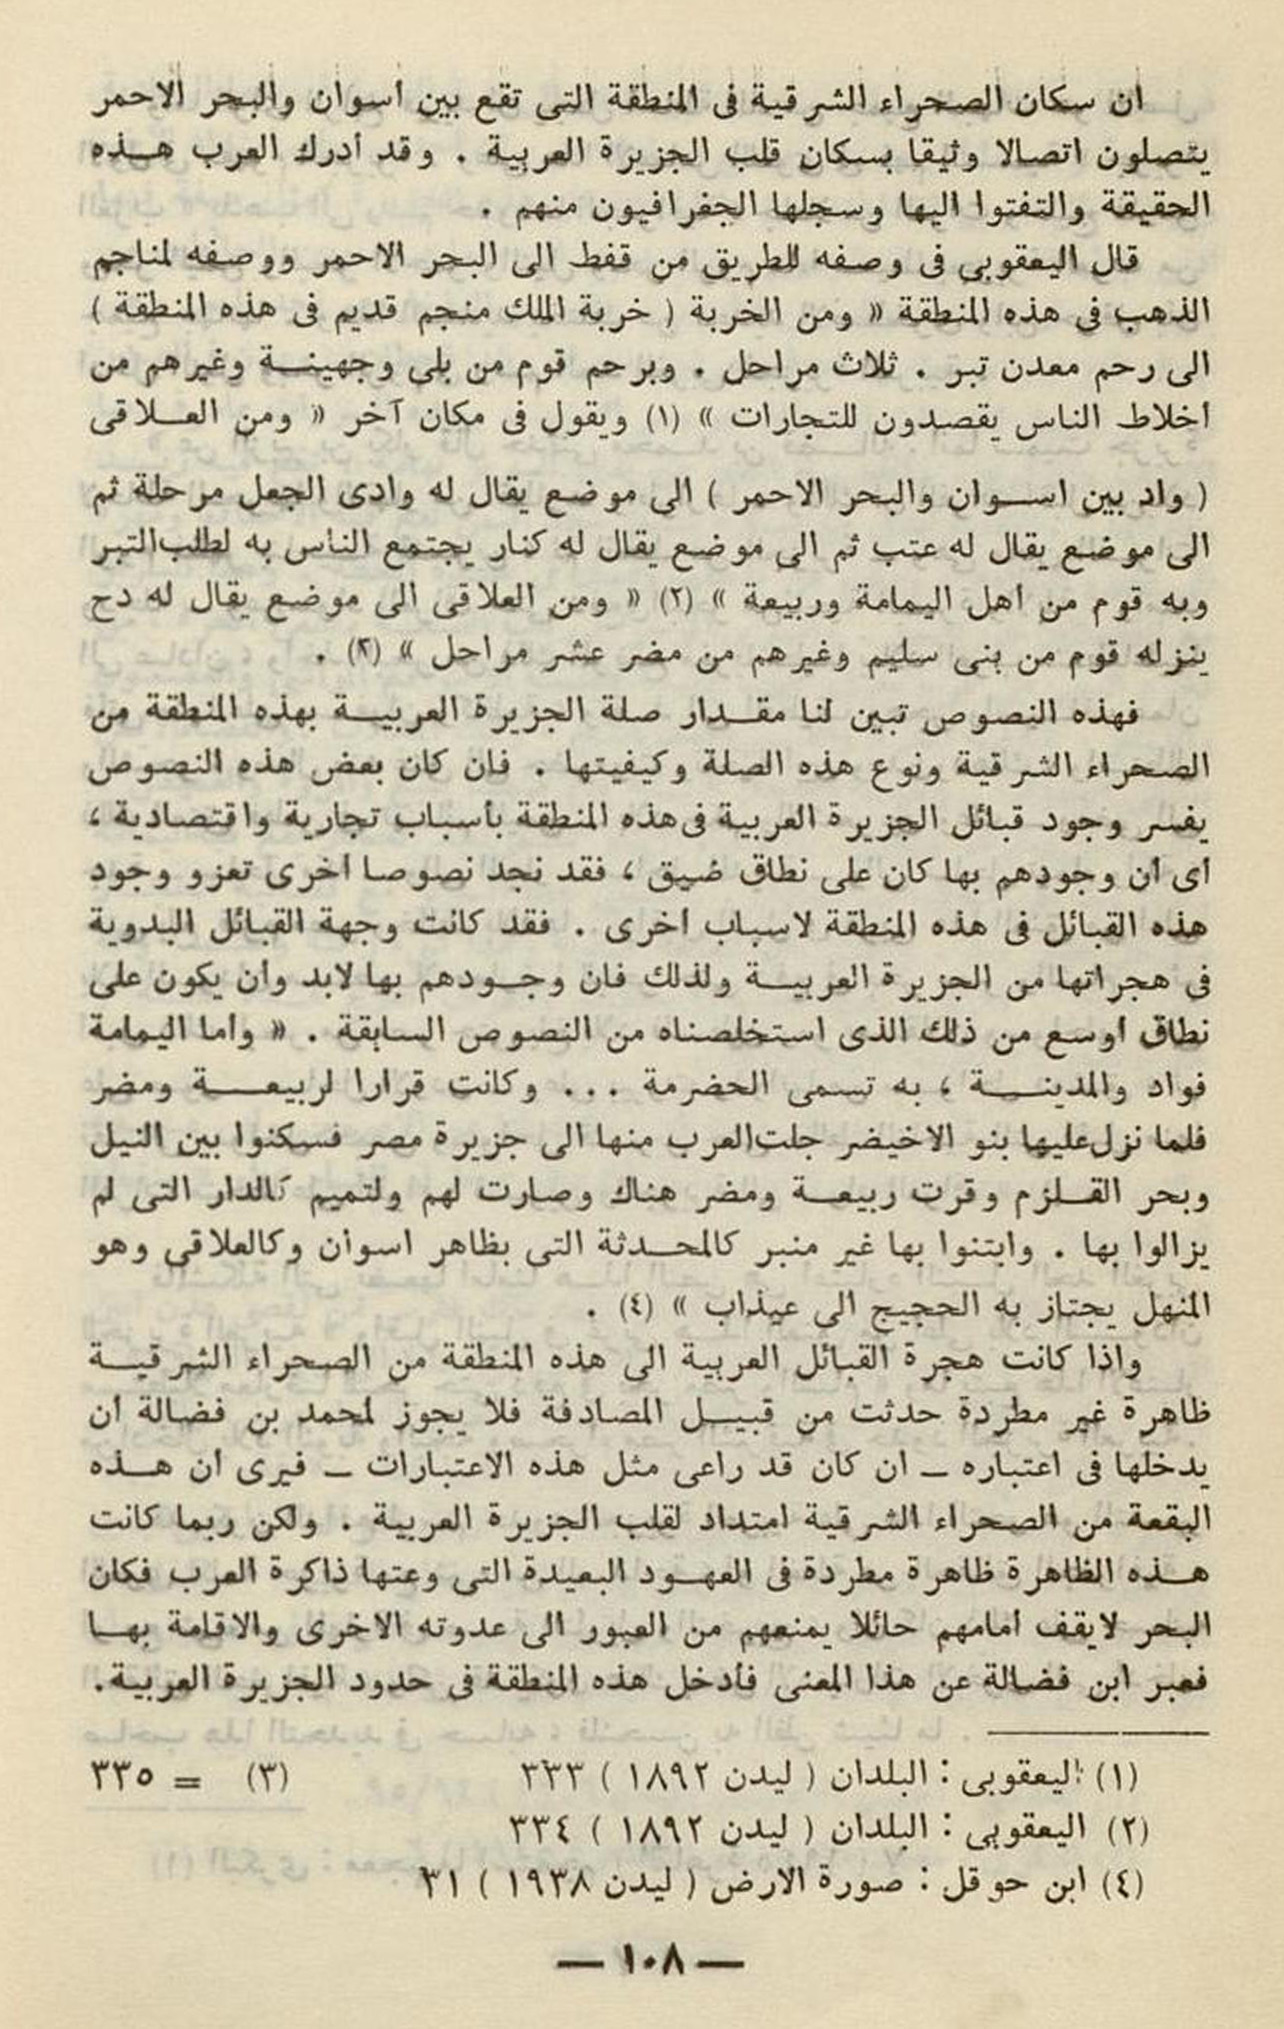 ان سكان الصحراء الشرقية فى المنطقة التى تقع بين أسوان والبحر الاحمر
يتصلون اتصالا وثيقا بسكان قلب الجزيرة العربية . وقد أدرك العرب هذه
الحقيقة والتفتوا اليها وسجلها الجغرافيون منهم .
قال اليعقوبى فى وصفه للطريق من قفط الى البحر الاحمر ووصفه لمناجم
الذهب فى هذه المنطقة « ومن الخربة ( خربة الملك منجم قديم فى هذه المنطقة )
الى رحم معدن تبر . ثلاث مراحل . وبرحم قوم من بلى وجهينة وغيرهم من
أخلاط الناس يقصدون للتجارات » (١) ويقول فى مكان آخر « ومن العلاقى
( واد بين اسوان والبحر الاحمر ) الى موضع يقال له وادى الجعل مرحلة ثم
الى موضع يقال له عتب ثم الى موضع يقال له كنار يجتمع الناس به لطلب التبر
وبه قوم من أهل اليمامة وربيعة » (٢) « ومن العلاقى الى موضع يقال له دح
ينزله قوم من بنى سليم وغيرهم من مضر عشر مراحل » (٣) .
فهذه النصوص تبين لنا مقدار صلة الجزيرة العربية بهذه المنطقة من
الصحراء الشرقية ونوع هذه الصلة وكيفيتها . فان كان بعض هذه النصوص
يفسر وجود قبائل الجزيرة العربية فى هذه المنطقة بأسباب تجارية واقتصادية ،
أى أن وجودهم بها كان على نطاق ضيق ، فقد نجد نصوصا أخرى تعزو وجود
هذه القبائل فى هذه المنطقة لاسباب أخرى . فقد كانت وجهة القبائل البدوية
فى هجراتها من الجزيرة العربية ولذلك فان وجودهم بها لابد وأن يكون على
نطاق أوسع من ذلك الذى استخلصناه من النصوص السابقة . « وأما اليمامة
فواد والمدينة ، به تسمى الحضرمة ... وكانت قرارا لربيعة ومضر
فلما نزل عليها بنو الاخيضر جلت العرب منها الى جزيرة مصر فسكنوا بين النيل
وبحر القلزم وقرت ربيعة ومضر هناك وصارت لهم ولتميم كالدار التى لم
يزالوا بها . وابتنوا بها غير منبر كالمحدثة التى بظاهر اسوان وكالعلاقى وهو
المنهل يجتاز به الحجيج الى عيذاب » (٤) .
واذا كانت هجرة القبائل العربية الى هذه المنطقة من الصحراء الشرقية
ظاهرة غير مطردة حدثت من قبيل المصادفة فلا يجوز لمحمد بن فضالة أن
يدخلها فى اعتباره ــ ان كان قد راعى مثل هذه الاعتبارات ــ فيرى أن هذه
البقعة من الصحراء الشرقية امتداد لقلب الجزيرة العربية . ولكن ربما كانت
هذه الظاهرة ظاهرة مطردة فى العهود البعيدة التى وعتها ذاكرة العرب فكان
البحر لايقف أمامهم حائلا يمنعهم من العبور الى عدوته الاخرى والاقامة بها
فعبر ابن فضالة عن هذا المعنى فأدخل هذه المنطقة فى حدود الجزيرة العربية.
(١) اليعقوبى : البلدان ( ليدن ١٨٩٢ ) ٣٣٣ (٣) = ٣٣٥
(٢) اليعقوبى : البلدان ( ليدن ١٨٩٢ ) ٣٣٤
(٤) ابن حوقل : صورة الارض ( ليدن ١٩٣٨ ) ٣١
— ١٠٨ —